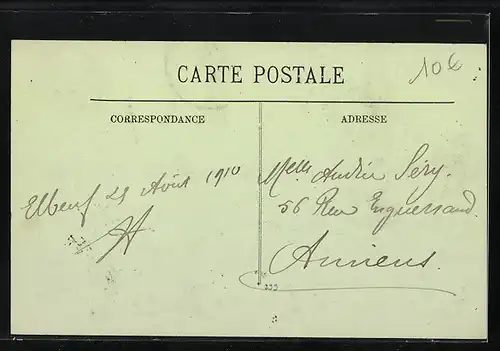 10€
CARTE POSTALE
CORRESPONDANCE
ADRESSE
Elbeuf 29 Août 1910
Melle Andrée Séry.
56 Rue Enguerrand.
Amiens.